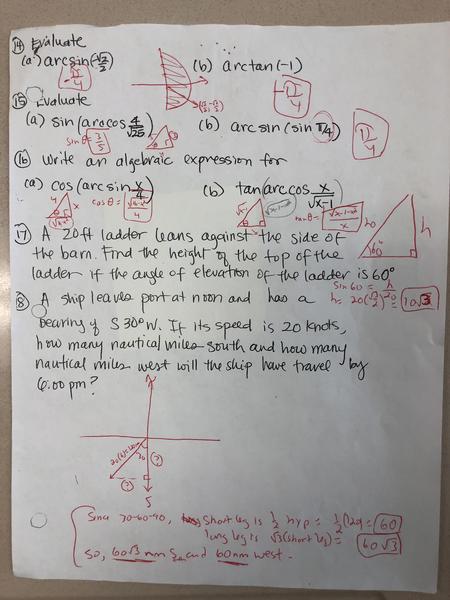 14 Evaluate
(a) arcsin(-√2/2) (b) arctan(-1)
-π/4
(√2/2, -√2/2)
-π/4
15 Evaluate
(a) sin(arccos 4/√25) (b) arcsin(sin π/4)
sin θ = 3/5
π/4
16 Write an algebraic expression for
(a) cos(arcsin x/4) (b) tan(arccos x/√x-1)
cos θ = √16-x²/4
4 x
17 A 20ft ladder leans against the side of
the barn. Find the height of the top of the
ladder if the angle of elevation of the ladder is 60°
20 h
60°
sin 60 = h/20
h = 20(√3/2) = 10√3
18 A ship leaves port at noon and has a
bearing of S 30° W. If its speed is 20 knots,
how many nautical miles south and how many
nautical miles west will the ship have travel by
6:00 pm?
20(6)=120
30
(?)
(?)
S
Since 30-60-90, short leg is 1/2 hyp = 1/2(120) = 60
long leg is √3(short leg) = 60√3
so, 60√3 nm S and 60nm west.